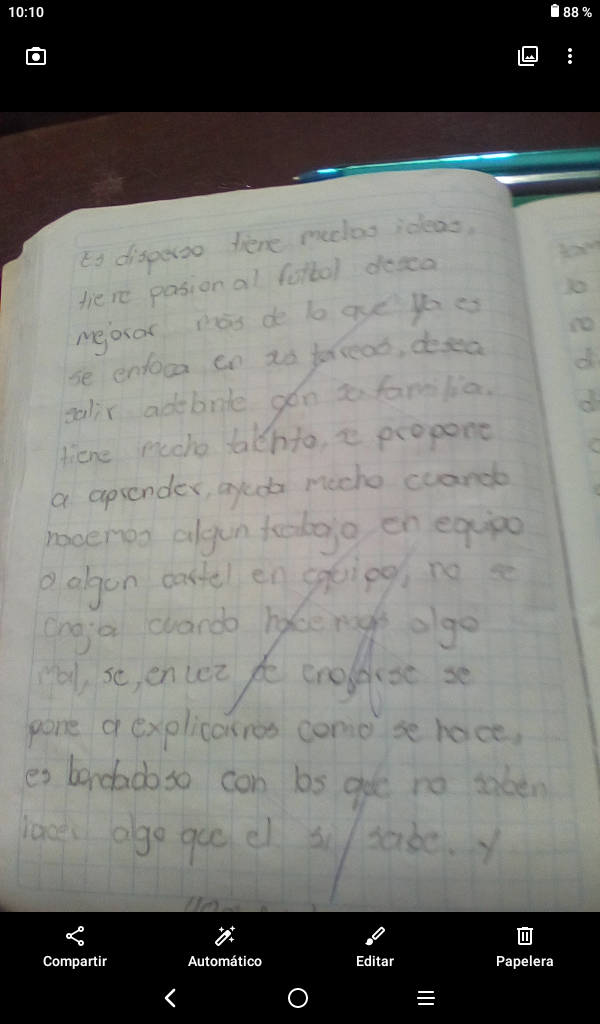 10:10
88 %
Es disperso tiene muchas ideas,
tiene pasion al futbol desea
mejorar más de lo que ya es
se enfoca en sus tareas, desea
salir adelante con su familia.
tiene mucho talento, se propone
a aprender, ayuda mucho cuando
hacemos algun trabajo en equipo
o algun cartel en equipo, no se
enoja cuando hacemos algo
mal, se, en vez de enojarse se
pone a explicarnos como se hace,
es bondadoso con los que no saben
hacer algo que el si sabe. y
Compartir
Automático
Editar
Papelera